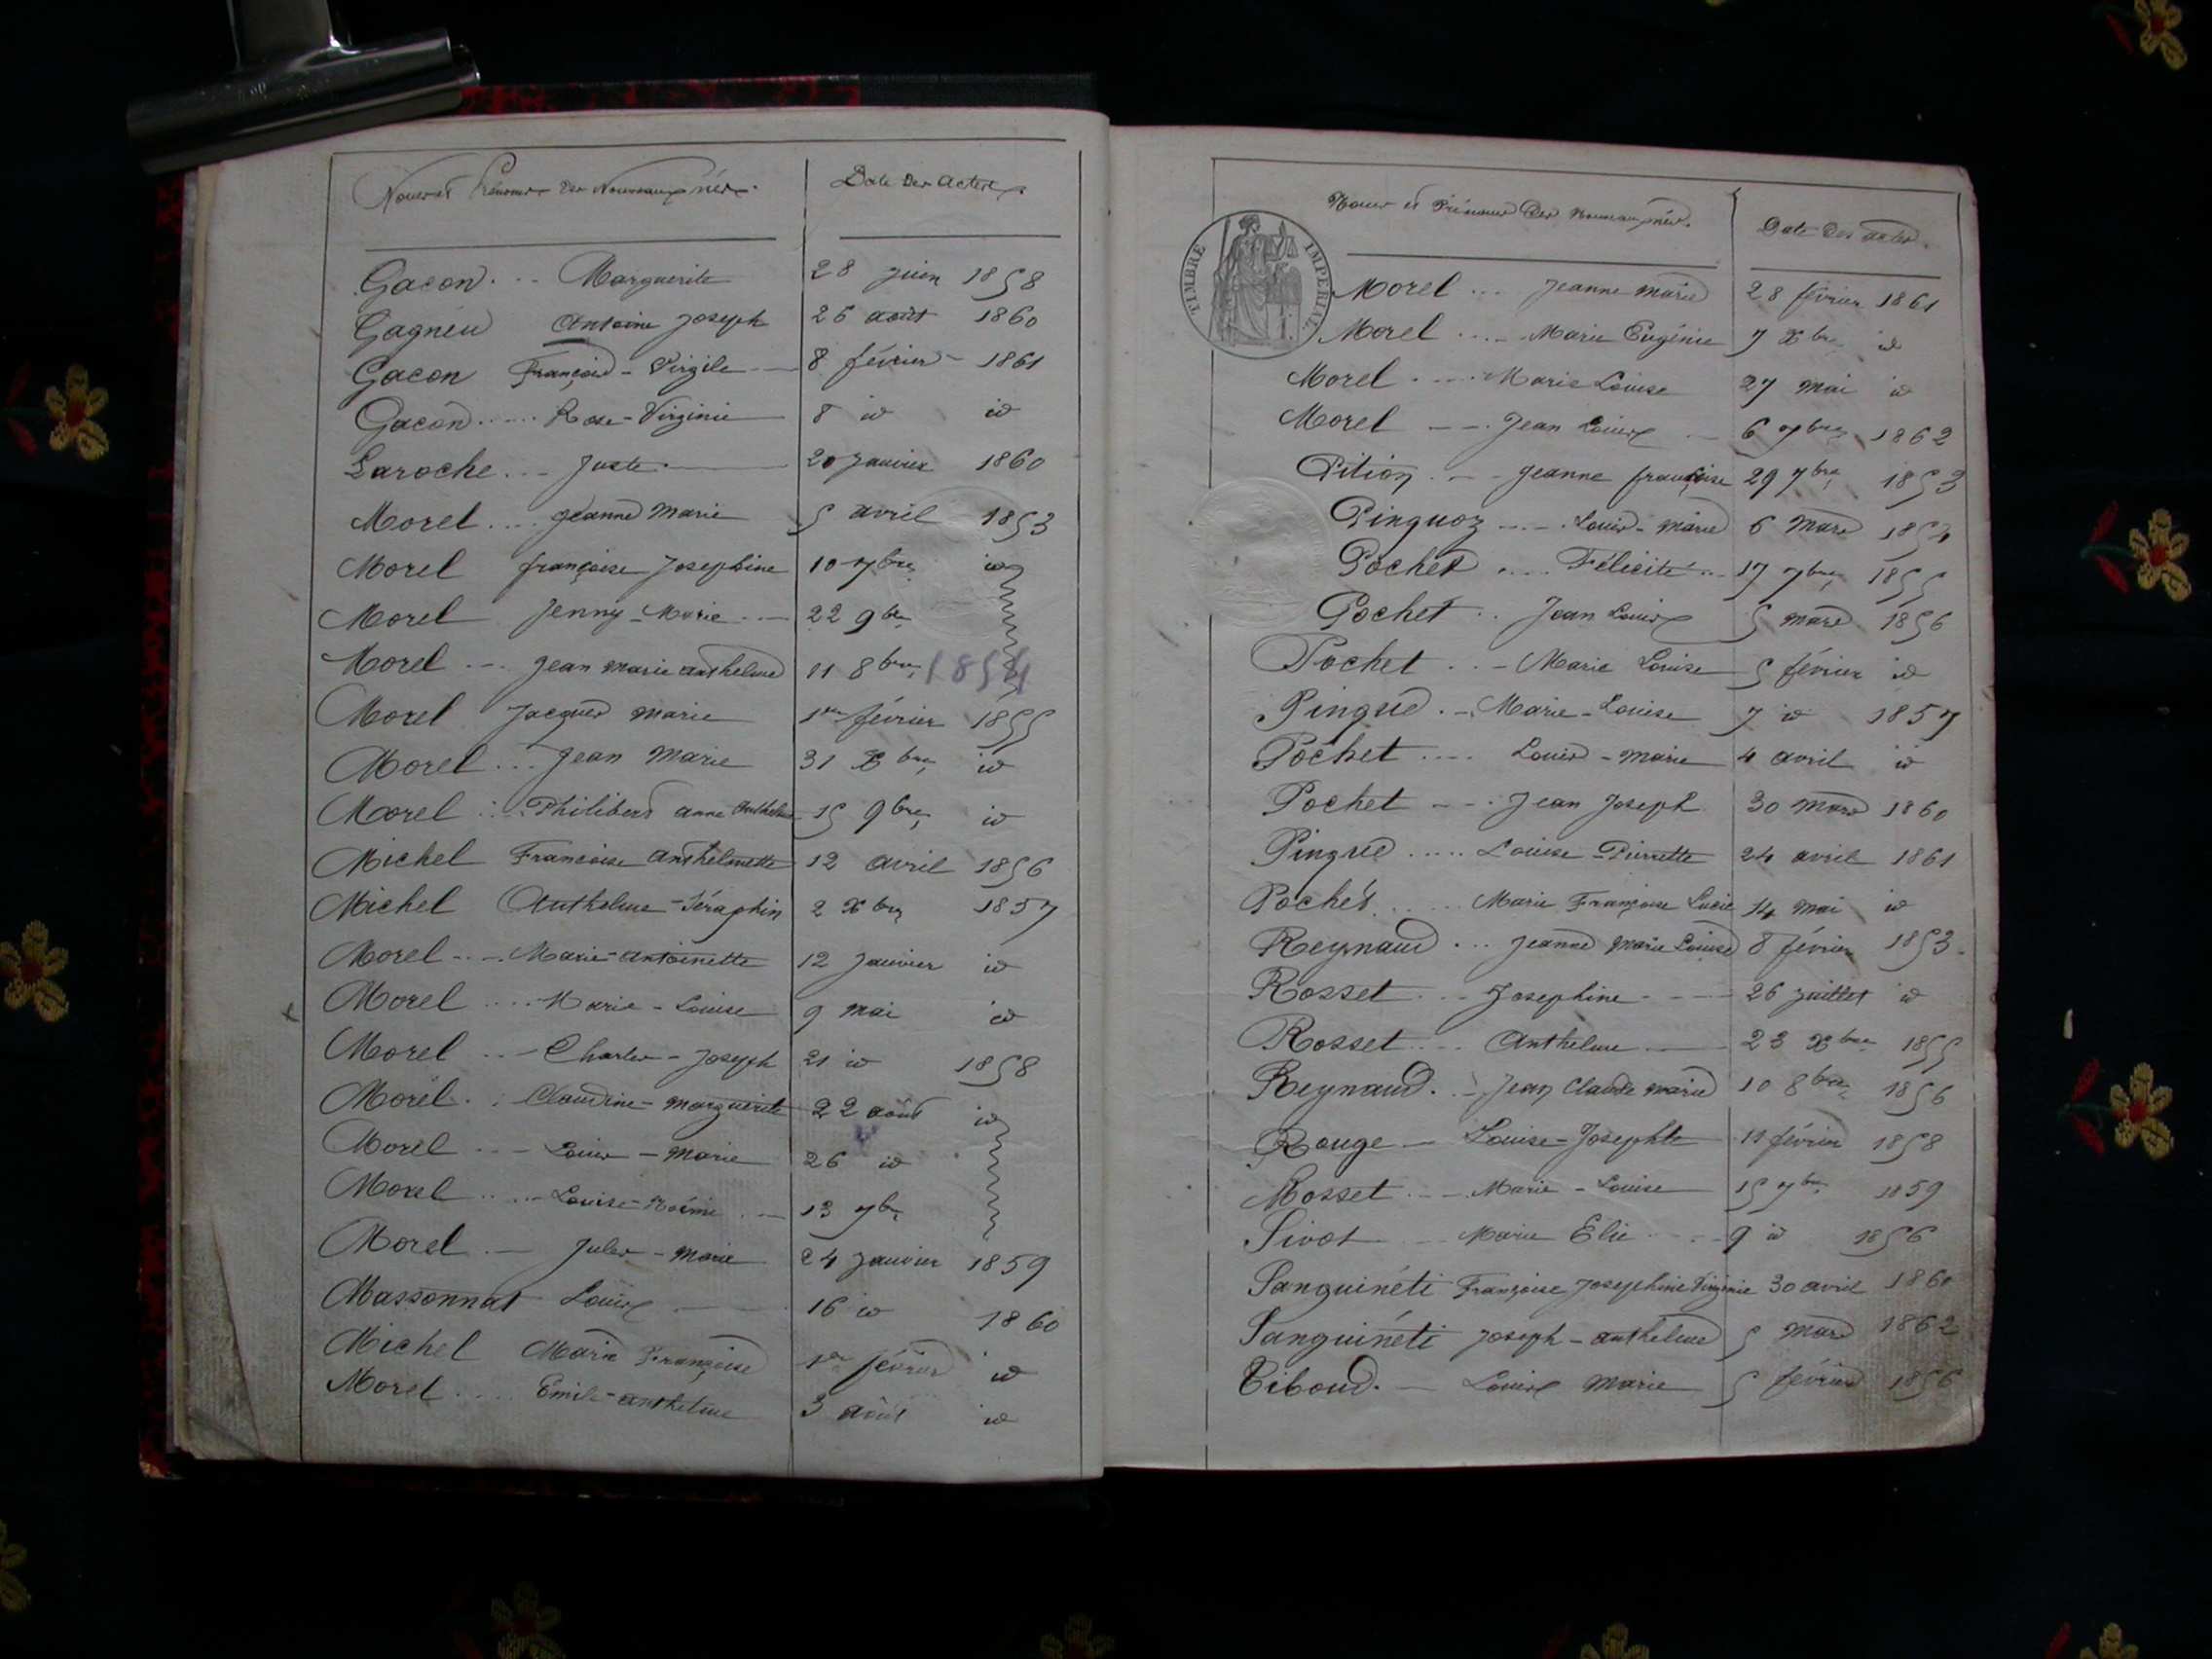 Noms et Prénoms des Nouveaux nés. Date des actes
Gacon. .. Marguerite 28 juin 1858
Gagneu Antoine Joseph 26 août 1860
Gacon François - Virgile 8 février 1861
Gacon ..... Rose-Virginie 8 id id
Laroche ... Juste 20 janvier 1860
Morel .... Jeanne Marie 5 avril 1853
Morel françoise Josephine 10 7bre id
Morel Jenny-Marie 22 9bre
Morel --- Jean marie anthelme 11 8bre 1854
Morel Jacques marie 1er février 1855
Morel ... Jean Marie 31 Xbre id
Morel ... Philibert anne Anthelme 15 9bre id
Michel Francoise anthelmette 12 avril 1856
Michel Anthelme-Séraphin 2 Xbre 1857
Morel ... Marie-antoinette 12 janvier id
Morel .... Marie-Louise 9 mai id
Morel ... Charles-Joseph 21 id 1858
Morel. . Claudine-marguerite 22 août id
Morel --- Louis-marie 26 id
Morel ..... Louise-Noémie 13 7bre
Morel ... Jules-marie 24 janvier 1859
Massonnat Louis 16 id 1860
Michel Marie Françoise 1er février id
Morel .... Emile-anthelme 3 août id
TIMBRE IMPERIAL
Noms et Prénoms des Nouveaux nés. Date des actes.
Morel ... Jeanne marie 28 février 1861
Morel ..... Marie Eugénie 7 Xbre id
Morel ..... Marie Louise 27 mai id
Morel --- Jean Louis 6 7bre 1862
Pition ... Jeanne françoise 29 7bre 1853
Pinguoz ..... Louis-marie 6 Mars 1854
Pochet .... Félicité 17 7bre 1855
Pochet .. Jean Louis 5 mars 1856
Pochet ... Marie Louise 5 février id
Pingue . - Marie-Louise 7 id 1857
Pochet .... Louis-marie 4 avril id
Pochet --- Jean Joseph 30 Mars 1860
Pingue ..... Louise-Pierrette 24 avril 1861
Pochet ..... Marie Françoise Lucie 14 mai id
Reynaud ... Jeanne Marie Louise 8 février 1853.
Rosset ... Josephine 26 juillet id
Rosset .... Anthelme 23 Xbre 1855
Reynaud. . Jean Claude marie 10 8bre 1856
Rouge - Louise-Josephte 11 février 1858
Mosset .... Marie-Louise 15 7bre 1859
Sivot Marie Elie 9 id 1856
Sanguinéti Françoise Josephine Virginie 30 avril 1860
Sanguinéti Joseph-anthelme 5 mars 1862
Tiboud. - Louis Marie 5 février 1856